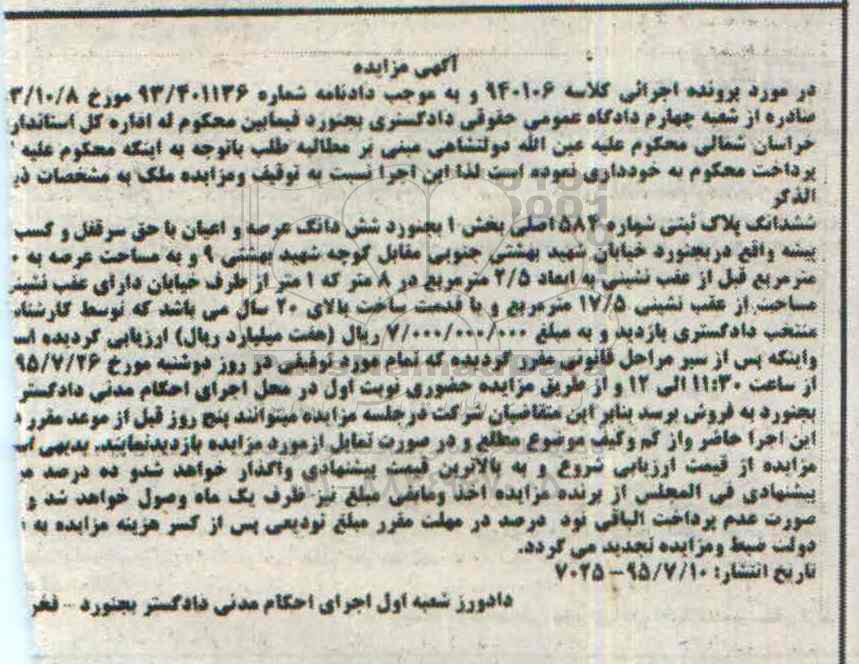 آگهی مزایده
در مورد پرونده اجرائی کلاسه ۹۴۰۱۰۶ و به موجب دادنامه شماره ۹۳/۴۰۱۱۳۶ مورخ ۳/۱۰/۸
صادره از شعبه چهارم دادگاه عمومی حقوقی دادگستری بجنورد فیمابین محکوم له اداره کل استاندار
خراسان شمالی محکوم علیه عین الله دولتشاهی مبنی بر مطالبه طلب باتوجه به اینکه محکوم علیه
پرداخت محکوم به خودداری نموده است لذا این اجرا نسبت به توقیف ومزایده ملک به مشخصات ذی
الذکر
ششدانگ پلاک ثبتی شماره ۵۸۴ اصلی بخش ۱ بجنورد شش دانگ عرصه و اعیان با حق سرقفل و کسب
پیشه واقع دربجنورد خیابان شهید بهشتی جنوبی مقابل کوچه شهید بهشتی ۹ و به مساحت عرصه به
مترمربع قبل از عقب نشینی به ابعاد ۲/۵ مترمربع در ۸ متر که ۱ متر از طرف خیابان دارای عقب نشینی
مساحت از عقب نشینی ۱۷/۵ مترمربع و با قدمت ساخت بالای ۲۰ سال می باشد که توسط کارشناس
منتخب دادگستری بازدید و به مبلغ ۷/۰۰۰/۰۰۰/۰۰۰ ریال (هفت میلیارد ریال) ارزیابی گردیده اس
واینکه پس از سیر مراحل قانونی مقرر گردیده که تمام مورد توقیفی در روز دوشنبه مورخ ۹۵/۷/۲۶
از ساعت ۱۱:۳۰ الی ۱۲ و از طریق مزایده حضوری نوبت اول در محل اجرای احکام مدنی دادگستر
بجنورد به فروش برسد بنابر این متقاضیان شرکت درجلسه مزایده میتوانند پنج روز قبل از موعد مقرر
این اجرا حاضر واز کم وکیف موضوع مطلع و در صورت تمایل ازمورد مزایده بازدیدنمایند. بدیهی اس
مزایده از قیمت ارزیابی شروع و به بالاترین قیمت پیشنهادی واگذار خواهد شدو ده درصد
پیشنهادی فی المجلس از برنده مزایده اخذ ومابقی مبلغ نیز ظرف یک ماه وصول خواهد شد و
صورت عدم پرداخت الباقی نود درصد در مهلت مقرر مبلغ تودیعی پس از کسر هزینه مزایده به
دولت ضبط ومزایده تجدید می گردد.
تاریخ انتشار: ۹۵/۷/۱۰ – ۷۰۲۵
دادورز شعبه اول اجرای احکام مدنی دادگستر بجنورد - فخر